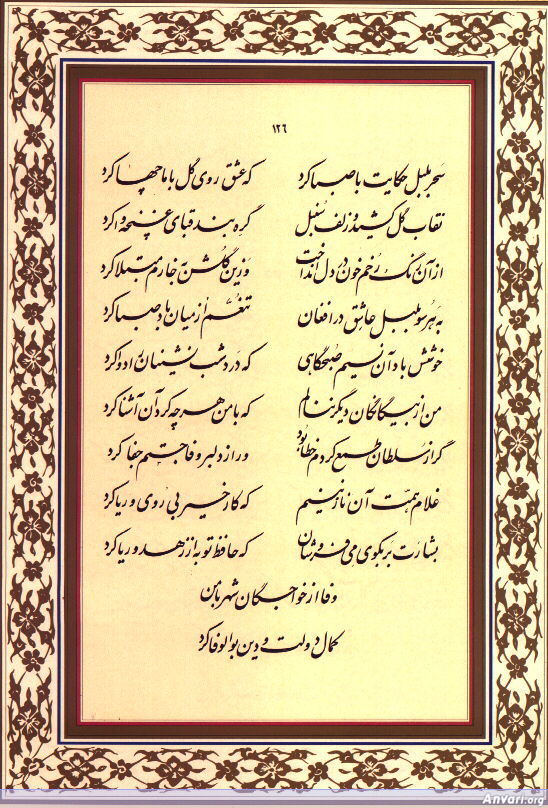 ۱۲۶
سحر بلبل حکایت با صبا کرد که عشق روی گل با ما چها کرد
نقاب گل کشید و زلف سنبل گره بند قبای غنچه وا کرد
از آن رنگ رخم خون در دل انداخت وزین گلشن به خارم مبتلا کرد
به هر سو بلبل عاشق در افغان تنعم از میان باد صبا کرد
خوشش باد آن نسیم صبحگاهی که درد شب نشینان را دوا کرد
من از بیگانگان دیگر ننالم که با من هرچه کرد آن آشنا کرد
گر از سلطان طمع کردم خطا بود ور از دلبر وفا جستم جفا کرد
غلام همت آن نازنینم که کار خیر بی روی و ریا کرد
بشارت بر بکوی می فروشان که حافظ توبه از زهد و ریا کرد
وفا از خواجگان شهر با من
کمال دولت و دین بوالوفا کرد
Anvari.org